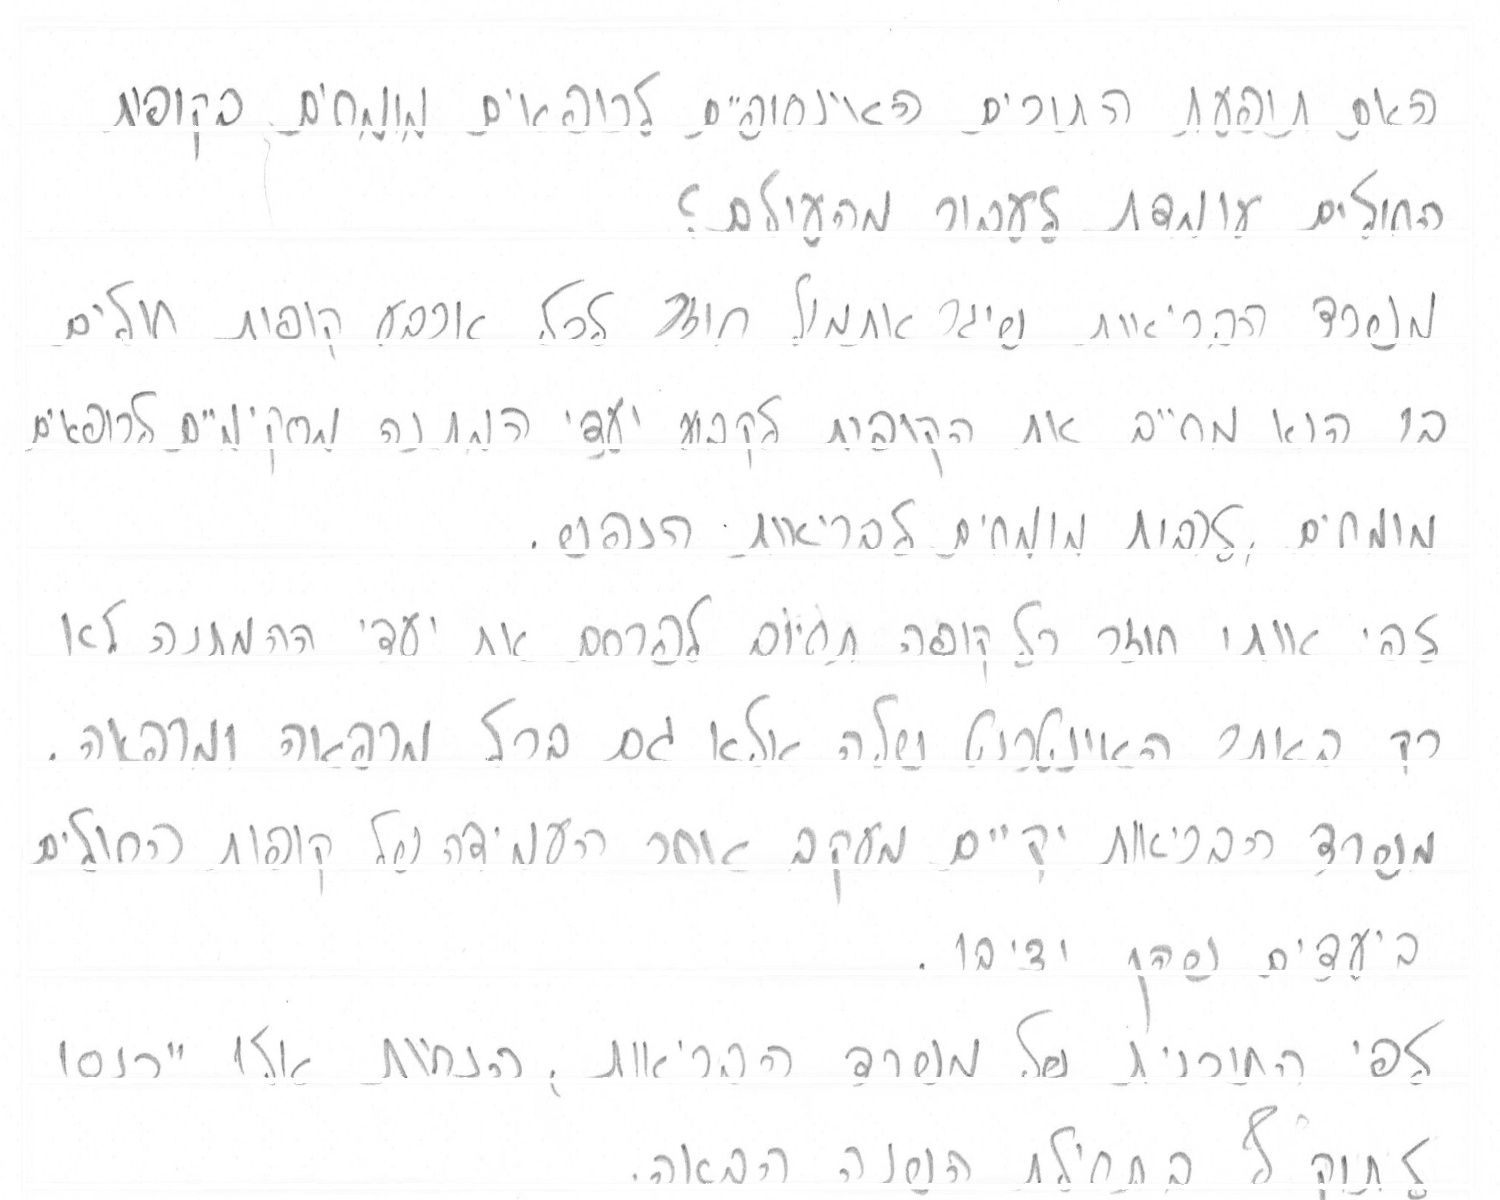 האם תופעת התורים האינסופיים לרופאים מומחים בקופות
החולים עומדת לעבור מהעולם?
משרד הבריאות שיגר אתמול חוזר לכל ארבע קופות חולים
בו הוא מחייב את הקופות לקבוע יעדי המתנה מקסימיים לרופאים
מומחים, לרבות מומחים לבריאות הנפש.
לפי אותו חוזר כל קופה תחויב לפרסם את יעדי ההמתנה לא
רק באתר האינטרנט שלה אלא גם בכל מרפאה ומרפאה.
משרד הבריאות יקיים מעקב אחר העמידה של קופות החולים
ביעדים שהן יציבו.
לפי התוכנית של משרד הבריאות, הנחיות אלו ייכנסו
לתוקף בתחילת השנה הבאה.